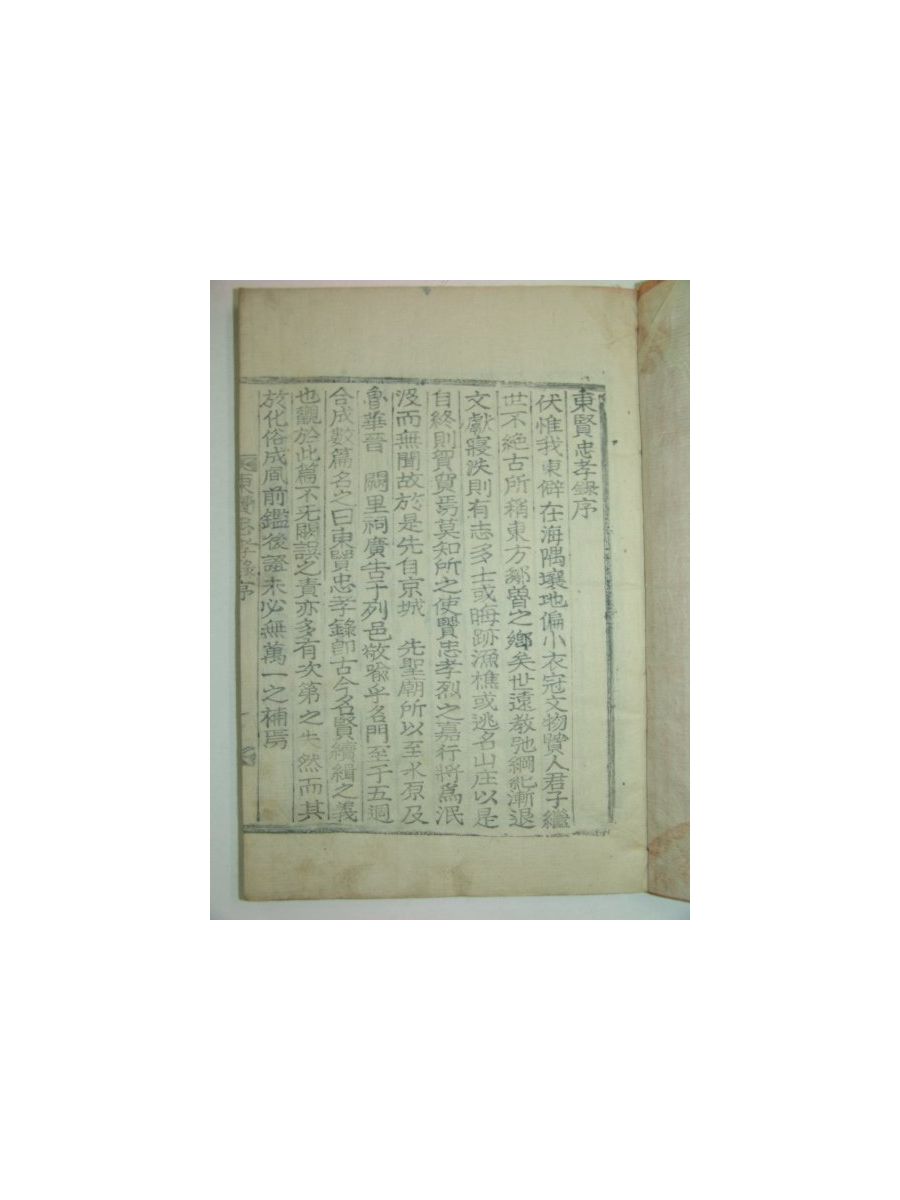 東賢忠孝錄序
伏惟我東僻在海隅壤地偏小衣冠文物賢人君子繼
世不絶古所稱東方鄒魯之鄉矣世遠教弛綱紀漸退
文獻寢泆則有志多士或晦跡漁樵或逃名山庄以是
自終則貿貿焉莫知所之使賢忠孝烈之嘉行將爲泯
沒而無聞故於是先自京城 先聖廟所以至水原及
魯華晉 闕里祠廣告于列邑敬喩乎名門至于五週
合成數篇名之曰東賢忠孝錄卽古今名賢續緝之義
也觀於此篇不无闕誤之責亦多有次第之失然而其
於化俗成風前鑑後證未必無萬一之補焉
東賢忠孝錄序